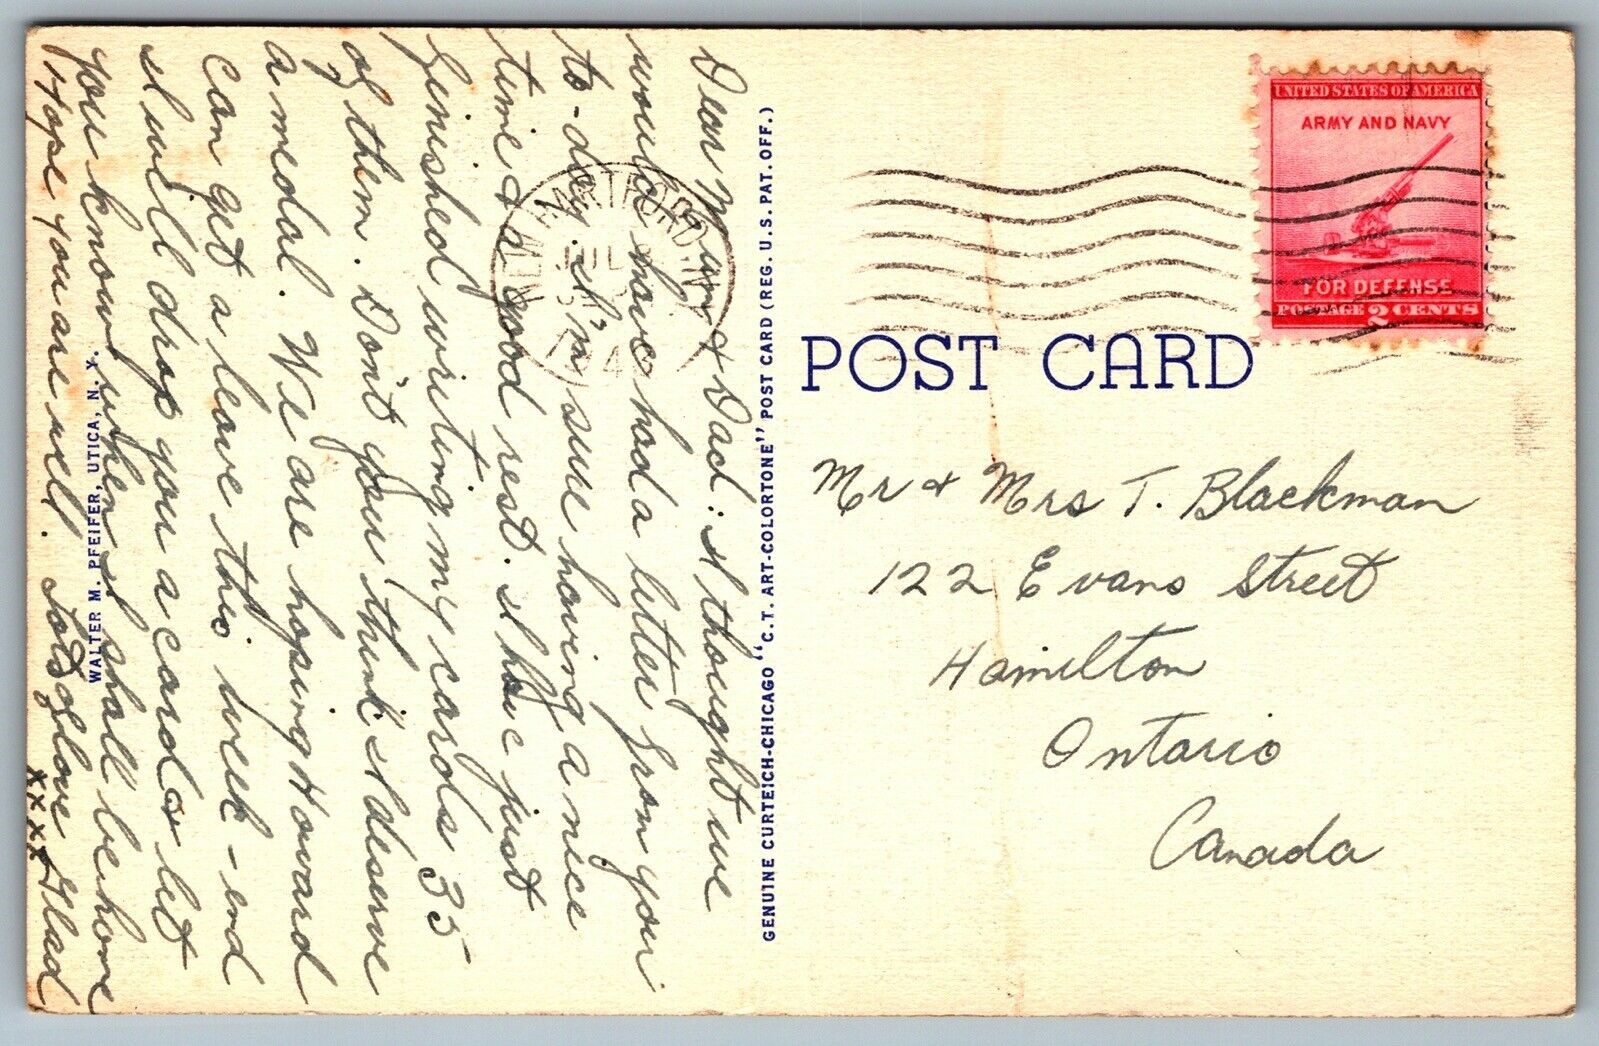 Dear Mum & Dad: I thought we
would have had a letter from you
to-day. I'm sure having a nice
time & a good rest. I have just
finished writing my cards 35
of them. Don't you think I deserve
a medal. We are hoping Howard
can get a leave this week-end
I will drop you a card & let
you know when I shall be home
Hope you are well. Lots of love Glad
xxxx
WALTER M. PFEIFER, UTICA, N. Y.
GENUINE CURTEICH-CHICAGO "C.T. ART-COLORTONE" POST CARD (REG. U.S. PAT. OFF.)
HARTFORD
JUL
UNITED STATES OF AMERICA
ARMY AND NAVY
FOR DEFENSE
POSTAGE 2 CENTS
POST CARD
Mr & Mrs T. Blackman
122 Evans Street
Hamilton
Ontario
Canada